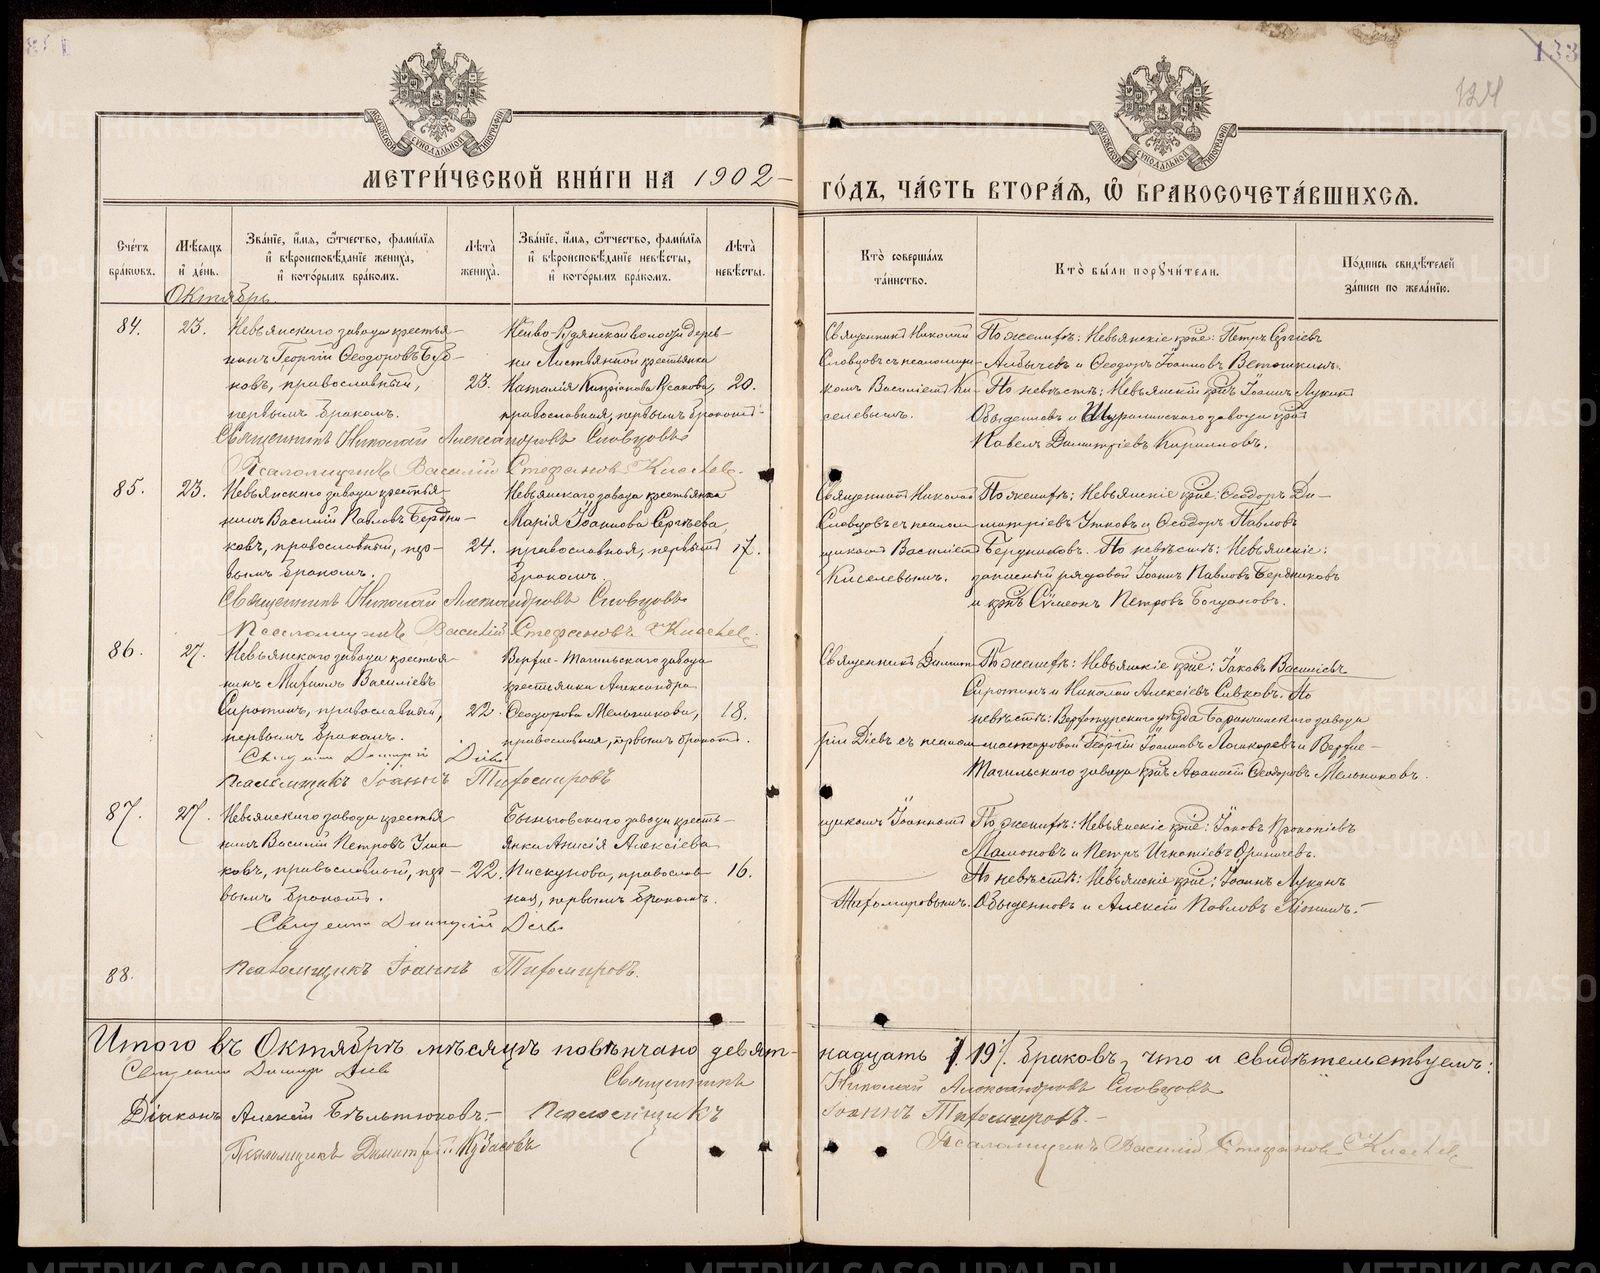 133
124
МЕТРИ́ЧЕСКОЙ КНИ́ГИ НА 1902 ГО́ДЪ, ЧА́СТЬ ВТОРА́Я, Ѡ БРАКОСОЧЕТА́ВШИХСЯ.
Сче́тъ бра́ковъ.
Мѣ́сяцъ и҆ де́нь.
Зва́нїе, и҆́мя, ѻ҆́тчество, фами́лїя и҆ вѣроисповѣ́данїе жениха̀, и҆ кото́рымъ бра́комъ.
Лѣ́та жениха̀.
Зва́нїе, и҆́мя, ѻ҆́тчество, фами́лїя и҆ вѣроисповѣ́данїе невѣ́сты, и҆ кото́рымъ бра́комъ.
Лѣ́та невѣ́сты.
Кто̀ соверша́лъ та́инство.
Кто̀ бы́ли порꙋчи́тели.
По́дпись свидѣ́телей за́писи по жела́нїю.
Октябрь
84. 23.
Невьянскаго завода крестья-
нинъ Георгій Ѳеодоровъ
ковъ, православный, 23.
первымъ бракомъ.
Нейво-Рудянской волости дерев-
ни Листвянной крестьянка
Наталія Русакова, 20.
православная, первымъ бракомъ.
Священникъ Николай
Словцовъ съ псаломщи-
комъ Василіемъ Ки-
селевымъ.
По женихѣ: Невьянскіе крне: Петръ Сергіевъ
и Ѳеодоръ Іоанновъ Ветошкинъ.
По невѣстѣ: Невьянскій крнъ Іоаннъ Лукинъ
Обыденновъ и Шуралинскаго завода крнъ
Павелъ Димитріевъ Кирилловъ.
Священникъ Николай Александровъ Словцовъ
Псаломщикъ Василій Стефановъ Киселевъ.
85. 23.
Невьянскаго завода крестья-
нинъ Василій Павловъ Бердни-
ковъ, православный, пер- 24.
вымъ бракомъ.
Невьянскаго завода крестьянка
Марія Іоаннова Сергѣева,
православная, первымъ 17.
бракомъ.
Священникъ Николай
Словцовъ съ псалом-
щикомъ Василіемъ
Киселевымъ.
По женихѣ: Невьянскіе крне: Ѳеодоръ Ди-
митріевъ Утковъ и Ѳеодоръ Павловъ
Бердниковъ. По невѣстѣ: Невьянскіе:
запасный рядовой Іоаннъ Павловъ Бердниковъ
и крнъ Сѵмеонъ Петровъ Богдановъ.
Священникъ Николай Александровъ Словцовъ
Псаломщикъ Василій Стефановъ Киселевъ.
86. 27.
Невьянскаго завода крестья-
нинъ Василіевъ
Сиротинъ, православный, 22.
первымъ бракомъ.
Верхне-Тагильскаго завода
крестьянка Александра
Ѳеодорова Мельникова, 18.
православная, первымъ бракомъ.
Священникъ Димит-
рій Діевъ съ псалом-
По женихѣ: Невьянскіе крне: Іаковъ Василіевъ
Сиротинъ и Николай Алексіевъ Сивковъ. По
невѣстѣ: Верхотурскаго уѣзда Баранчинскаго завода
мастеровой Георгій Іоанновъ и Верхне-
Тагильскаго завода крнъ Аѳанасій Ѳеодоровъ Мельниковъ.
Священ Дмитрій Діевъ
Псаломщикъ Іоаннъ Тихомировъ
87. 27.
Невьянскаго завода крестья-
нинъ Василій Петровъ Уша-
ковъ, православный, пер- 22.
вымъ бракомъ.
Быньговскаго завода кресть-
янка Анисія Алексіева
Пискунова, православ- 16.
ная, первымъ бракомъ.
щикомъ Іоанномъ
Тихомировымъ.
По женихѣ: Невьянскіе крне: Іаковъ Прокопіевъ
Мамоновъ и Петръ Игнатіевъ
По невѣстѣ: Невьянскіе крне: Іоаннъ Лукинъ
Обыденновъ и Алексій Павловъ
Священ Дмитрій Діевъ
Псаломщикъ Іоаннъ Тихомировъ.
88.
Итого въ Октябрѣ мѣсяцѣ повѣнчано девят-надцать 19 браковъ, что и свидѣтельствуемъ:
Священ Дмитр Діевъ Священникъ Николай Александровъ Словцовъ
Діаконъ Алексій Бѣльтюковъ. Псаломщикъ Іоаннъ Тихомировъ.
Псаломщикъ Димитрій Кубасовъ Псаломщикъ Василій Стефановъ Киселевъ
METRIKI.GASO-URAL.RU